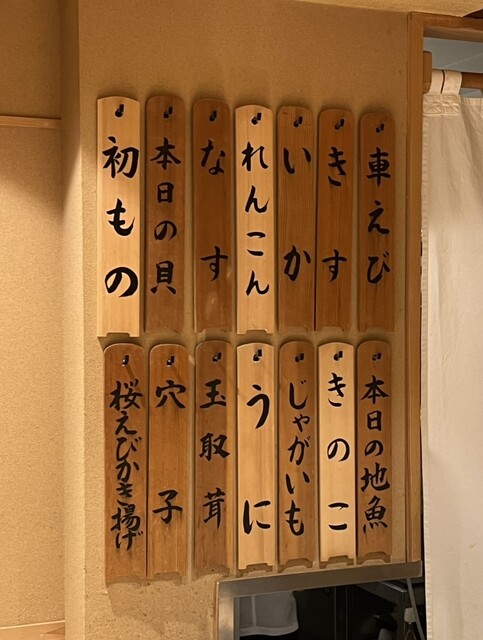 車えび
きす
いか
れんこん
なす
本日の貝
初もの
本日の地魚
きのこ
じゃがいも
うに
玉取茸
穴子
桜えびかき揚げ